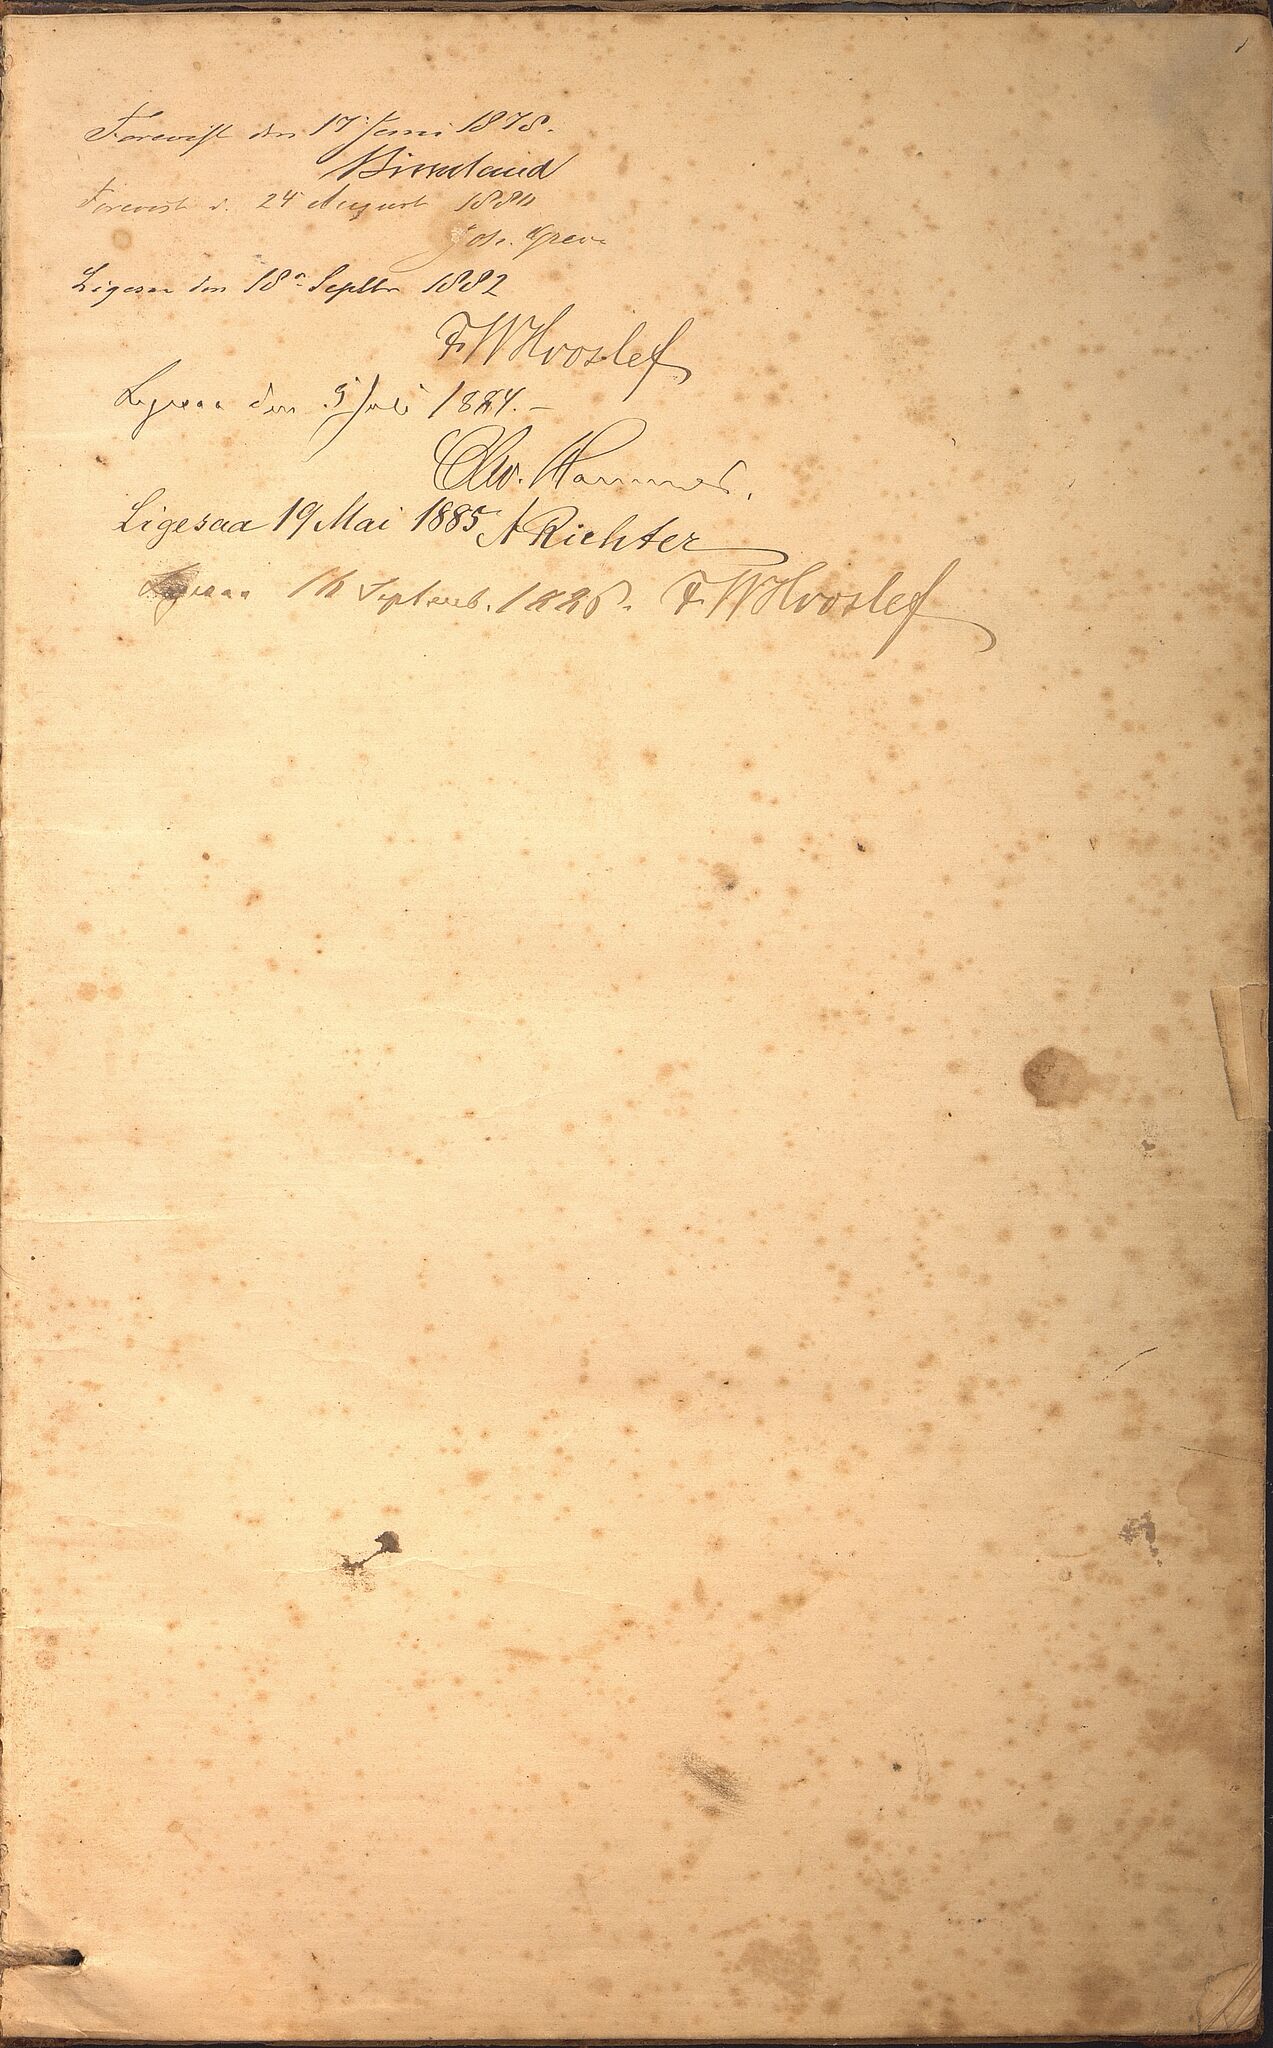 1
Forevist den 17 Juni 1878.
Birkeland
Forevist d. 24 August 1880
Joh. Greve
Ligesaa den 18 Septbr 1882
FWHvoslef
Ligesaa den 5 Juli 1884. –
Chr. Hammer.
Ligesaa 19 Mai 1885 A Richter
Ligesaa 16 Septemb. 1886. FWHvoslef